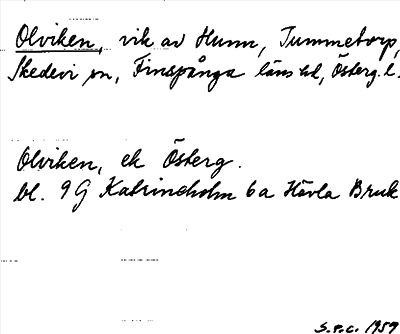 Olviken, vik av Hunn, Tummetorp,
Skedevi sn, Finspånga läns hd, Österg. l.
Olviken, ek Österg.
bl. 9 G Katrineholm 6 a Hävla Bruk
S.r.c. 1959